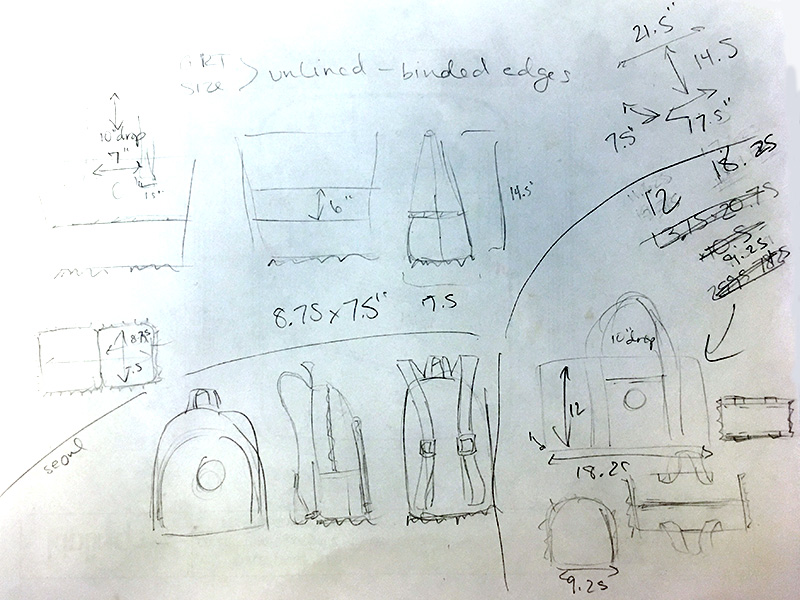 ART SIZE > unlined - binded edges
21.5"
14.5
17.5"
7.5"
10" drop
7"
1.5"
6"
14.5"
7.5
8.75 x 7.5"
8.75
7.5
seoul
18.25
12
13.75 x 20.75
10.5
9.25
10" drop
12
18.25
9.25